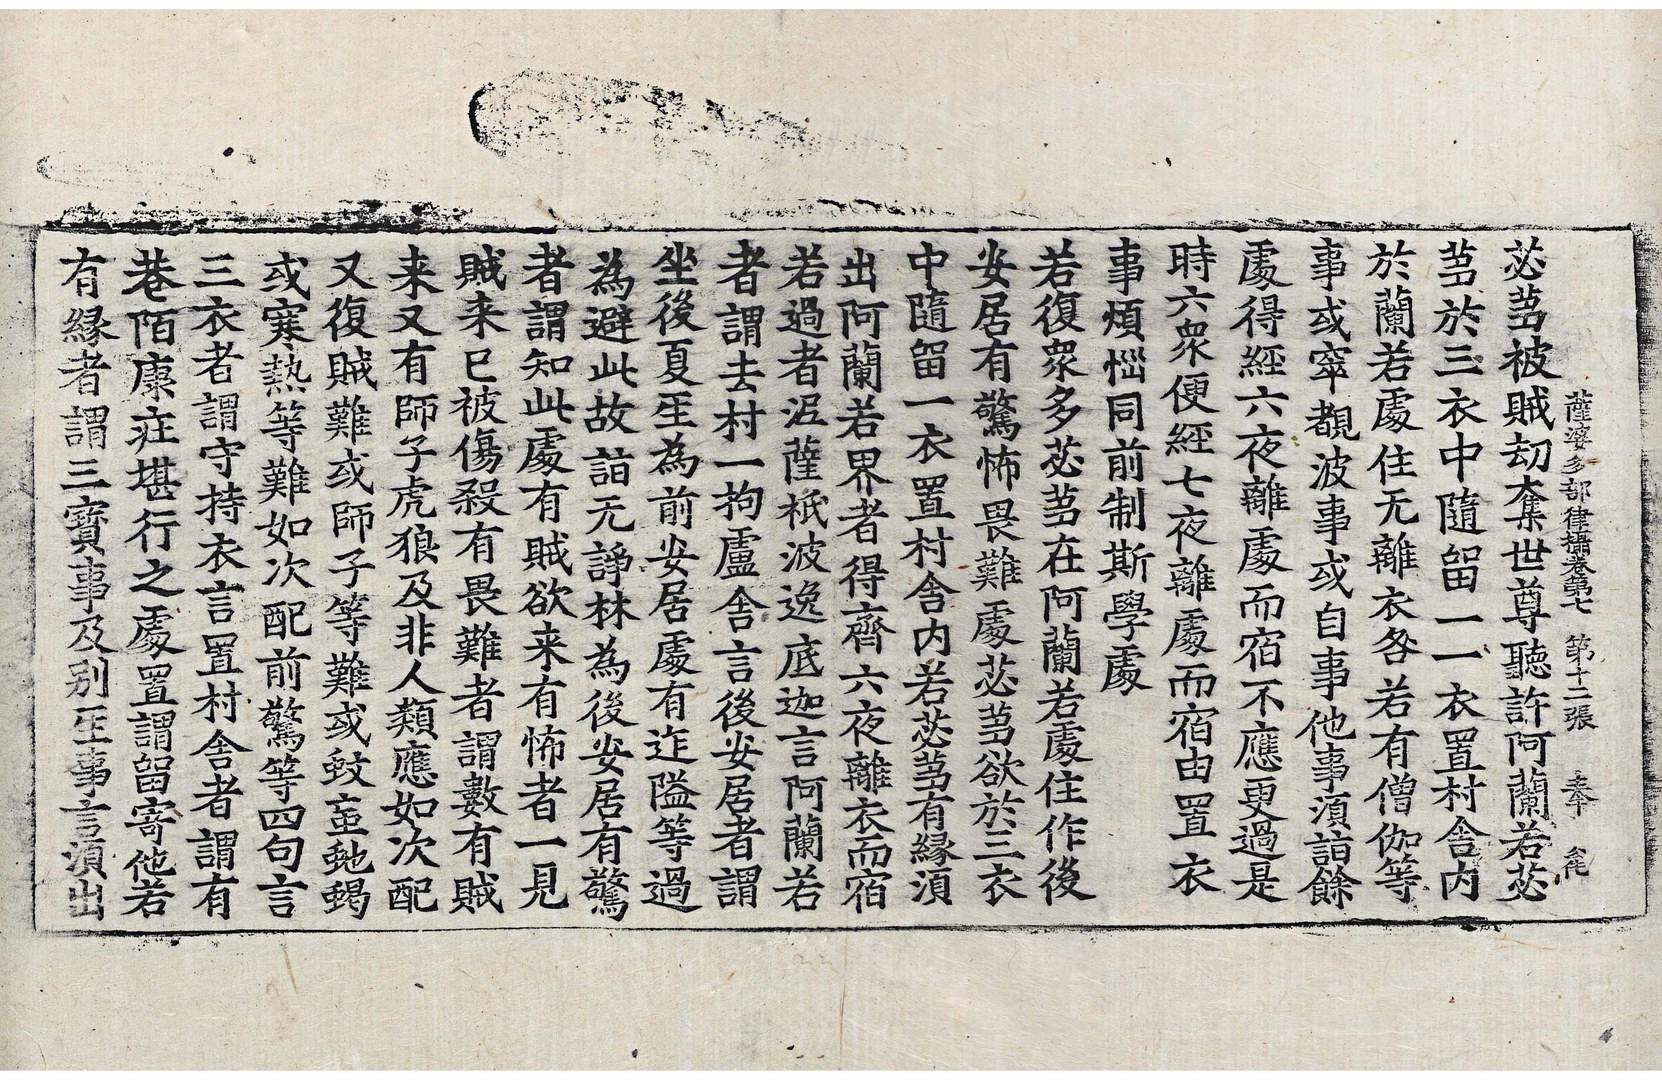 薩婆多部律攝卷第七 第十二張 奉
苾芻被賊劫奪世尊聽許阿蘭若苾
芻於三衣中隨留一一衣置村舍內
於蘭若處住无離衣咎若有僧伽等
事或窣覩波事或自事他事湏詣餘
處得經六夜離處而宿不應更過是
時六衆便經七夜離處而宿由置衣
事煩惱同前制斯學處
若復衆多苾芻在阿蘭若處住作後
安居有驚怖畏難處苾芻欲於三衣
中隨留一衣置村舍內若苾芻有緣湏
出阿蘭若界者得齊六夜離衣而宿
若過者泥薩祇波逸底迦言阿蘭若
者謂去村一拘盧舍言後安居者謂
坐後夏至為前安居處有迮隘等過
為避此故詣无諍林為後安居有驚
者謂知此處有賊欲来有怖者一見
賊来已被傷殺有畏難者謂數有賊
来又有師子虎狼及非人類應如次配
又復賊難或師子等難或蚊虻虵蝎
或寒熱等難如次配前驚等四句言
三衣者謂守持衣言置村舍者謂有
巷陌康莊堪行之處置謂留寄他若
有緣者謂三寶事及别𤯔事言湏出